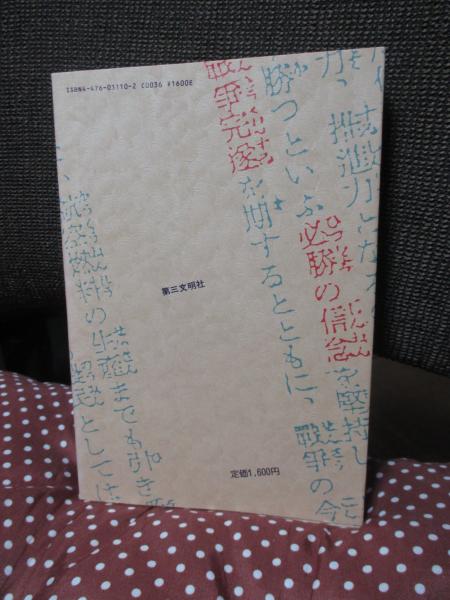 ISBN4-476-03110-2 C0036 ¥1600E
力、推進力となる
勝つといふ必勝の信念を堅持し
戦争完遂を期するとともに、戦争の今
の生産までも引き
としては
第三文明社
定価1,600円